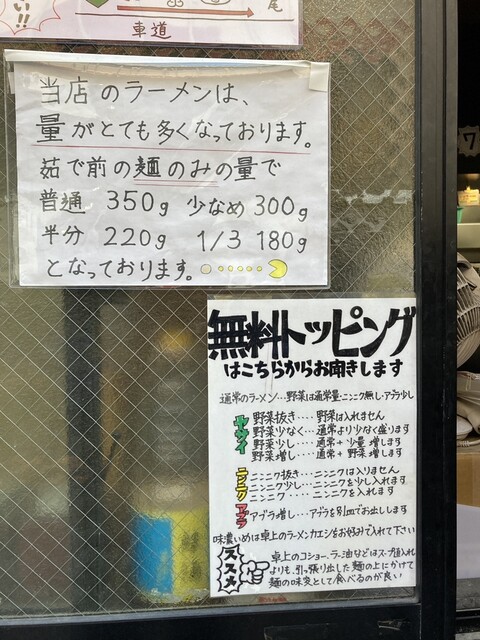 い!!
尾
車道
当店のラーメンは、
量がとても多くなっております。
茹で前の麺のみの量で
普通 350g 少なめ 300g
半分 220g 1/3 180g
となっております。
無料トッピング
はこちらからお聞きします
通常のラーメン…野菜は通常量・ニンニク無し・アブラ少し
ヤサイ
野菜抜き‥‥野菜は入れません
野菜少なく‥通常より少なく盛ります
野菜少し‥‥通常+少量増します
野菜増し‥‥通常+野菜増します
ニンニク
ニンニク抜き‥‥ニンニクは入りません
ニンニク少し‥‥ニンニクを少し入れます
ニンニク‥‥ニンニクを入れます
アブラ
アブラ増し‥‥アブラを別皿でお出しします
味濃いめは卓上のラーメンカエシをお好みで入れて下さい
ススメ
卓上のコショー、ラー油などはスープ直入れ
よりも、引っ張り出した麺の上にかけて
麺の味変として食べるのが良い
7